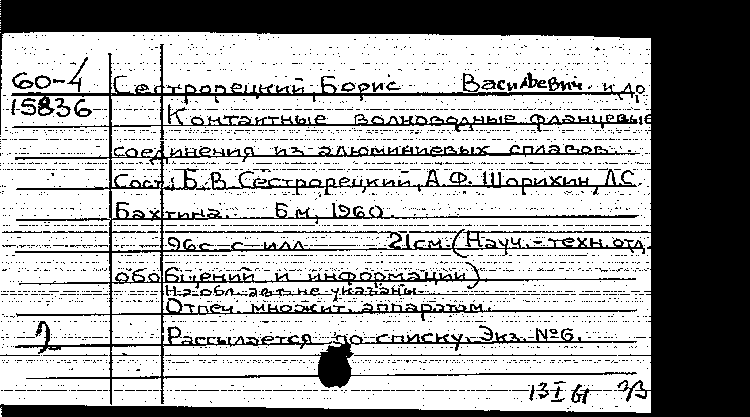 60-4 Сестрорецкий, Борис Васильевич. и др
15836 Контактные волноводные фланцевые
соединения из алюминиевых сплавов.
Сост.: Б.В Сестрорецкий, А.Ф. Шорихин, Л.С.
Бахтина. Б м, 1960.
96с. с илл 21см. (Науч.-техн. отд.
обобщений и информации)
На обл. авт. не указаны.
Отпеч. множит. аппаратом.
2 Рассылается по списку. Экз. №6.
13 I 61